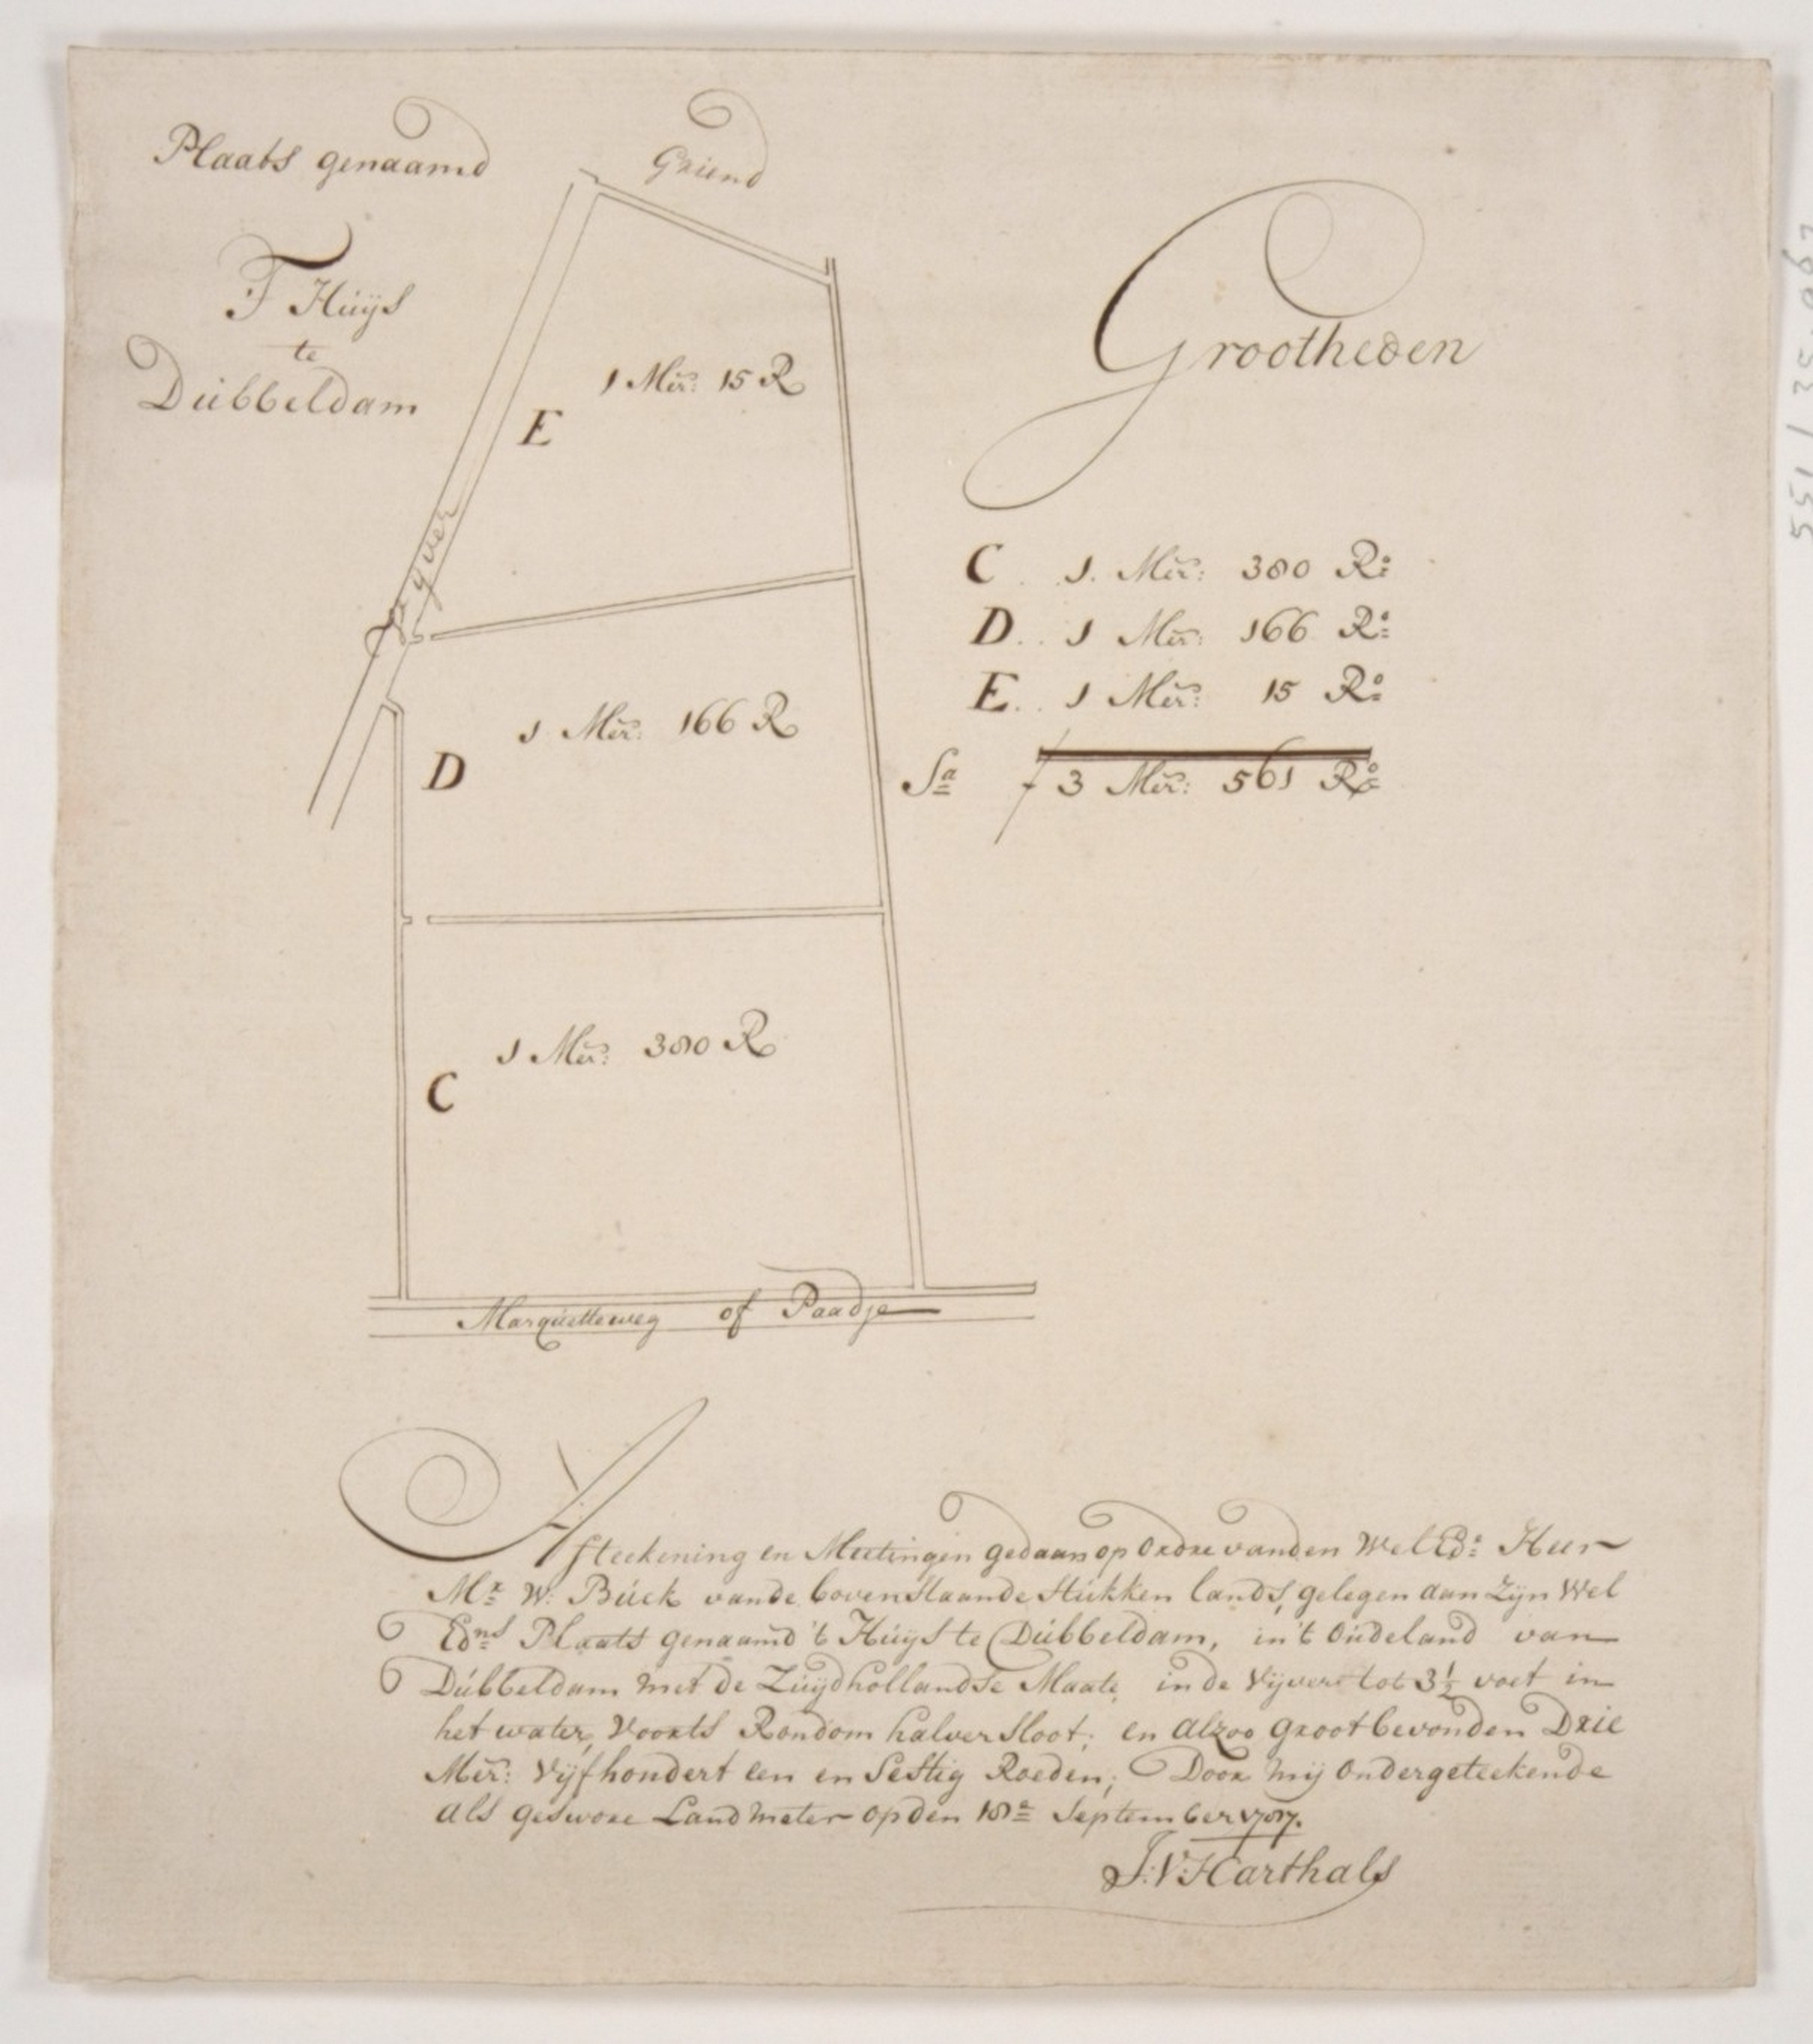 Plaats genaamd
Griend
T Huijs
te
Dubbeldam
Vijver
E
1 Mer: 15 R
D
1 Mer: 166 R
C
1 Mer: 380 R
Marquetteweg of Paadje
Grootheden
C. 1. Mer: 380 Ro
D.. 1 Mer: 166 Ro
E.. 1 Mer: 15 Ro
Sa 3 Mer: 561 Ro
Afteekening en Meetingen gedaan op Ordre vanden Wel Ed: Heer
Mr W: Buck vande bovenstaande Stukken lands, gelegen aan Zijn Wel
Edns Plaats genaamd 't Huijs te Dubbeldam, in't Oudeland van
Dubbeldam met de Zuijdhollandse Maate, in de Vijver tot 3½ voet in
het water, Voorts Rondom halver Sloot; en alzoo groot bevonden Drie
Mer: Vijfhondert een en Sestig Roeden; Door mij Ondergeteekende
als geswore Landmeter op den 18e September 1787.
J:V:Harthals
551/35097